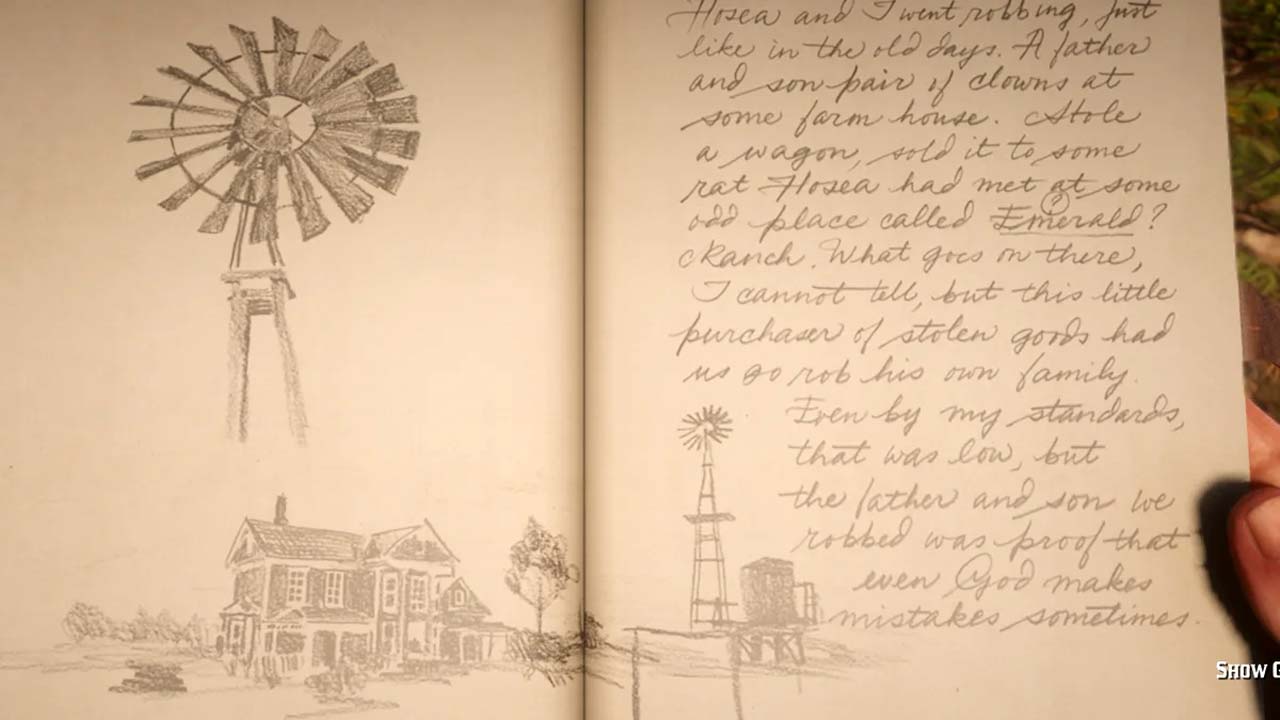 Hosea and I went robbing, just
like in the old days. A father
and son pair of clowns at
some farm house. Stole
a wagon, sold it to some
rat Hosea had met at some
odd place called Emerald?
Ranch. What goes on there,
I cannot tell, but this little
purchaser of stolen goods had
us go rob his own family.
Even by my standards,
that was low, but
the father and son we
robbed was proof that
even God makes
mistakes sometimes.
SHOW